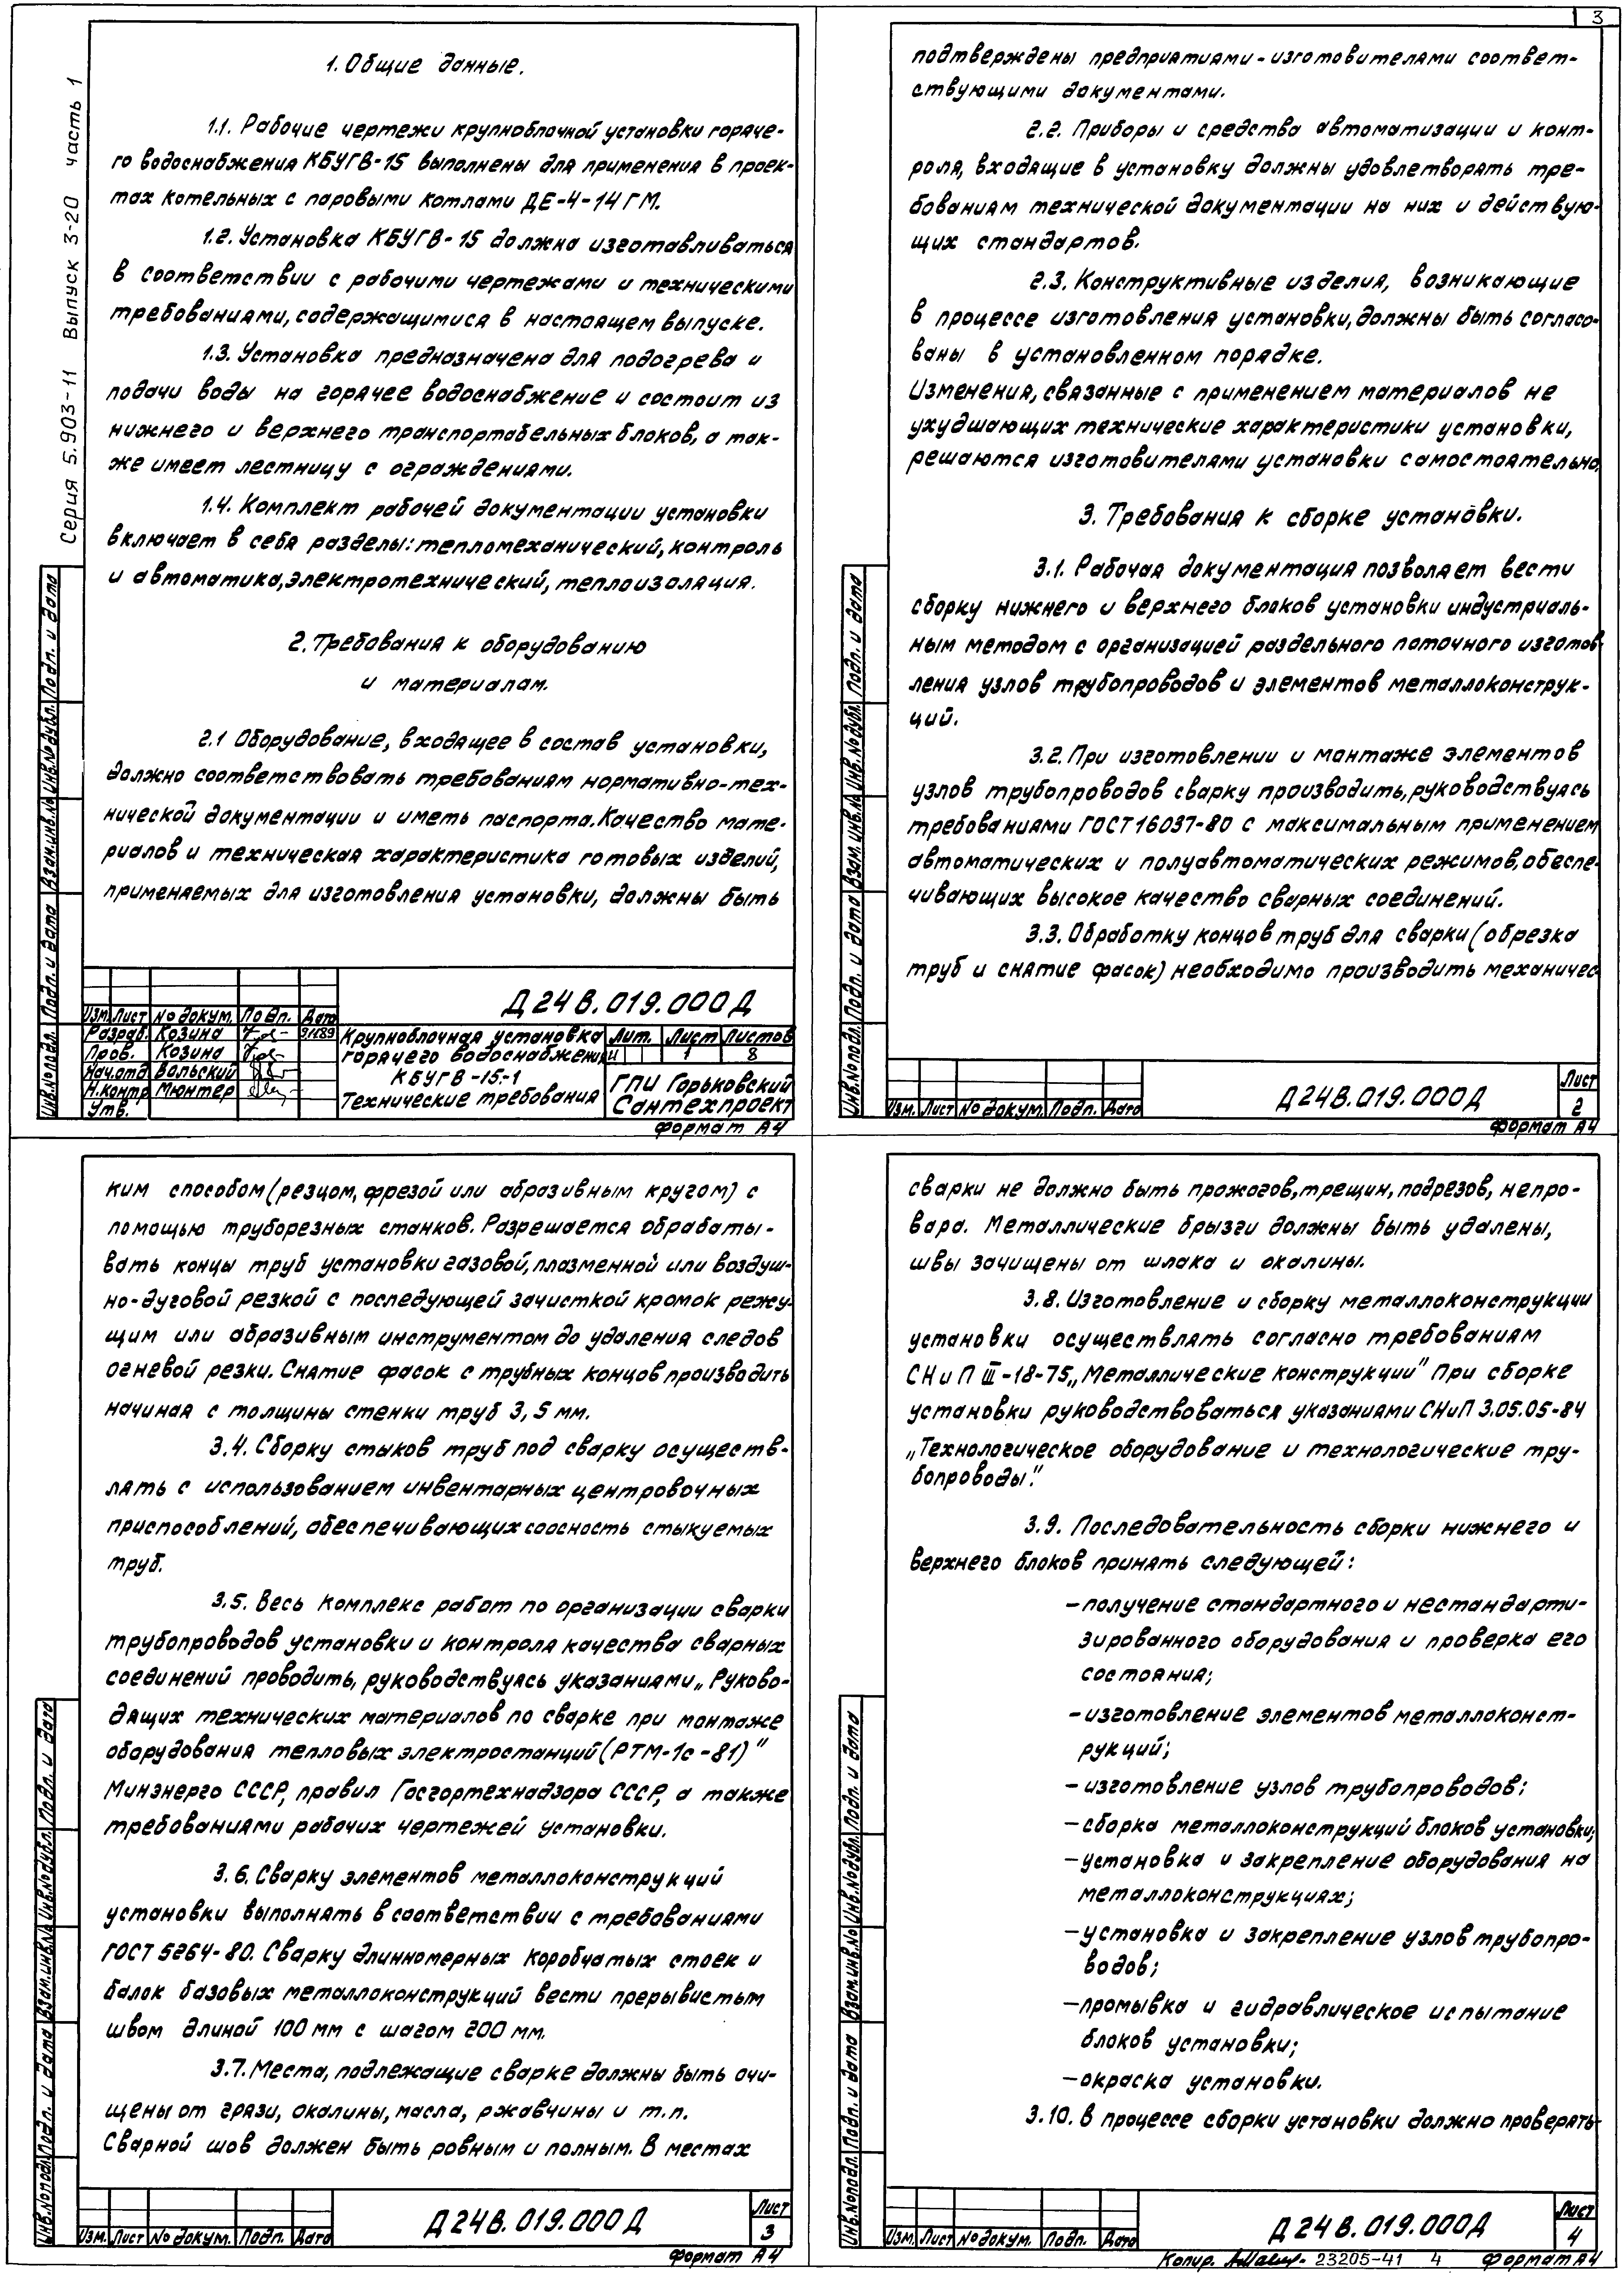 3
Серия 5.903-11 Выпуск 3-20 часть 1
1. Общие данные.
1.1. Рабочие чертежи крупноблочной установки горяче-
го водоснабжения КБУГВ-15 выполнены для применения в проек-
тах котельных с паровыми котлами ДЕ-4-14ГМ.
1.2. Установка КБУГВ-15 должна изготавливаться
в соответствии с рабочими чертежами и техническими
требованиями, содержащимися в настоящем выпуске.
1.3. Установка предназначена для подогрева и
подачи воды на горячее водоснабжение и состоит из
нижнего и верхнего транспортабельных блоков, а так-
же имеет лестницу с ограждениями.
1.4. Комплект рабочей документации установки
включает в себя разделы: тепломеханический, контроль
и автоматика, электротехнический, теплоизоляция.
2. Требования к оборудованию
и материалам.
2.1 Оборудование, входящее в состав установки,
должно соответствовать требованиям нормативно-тех-
нической документации и иметь паспорта. Качество мате-
риалов и техническая характеристика готовых изделий,
применяемых для изготовления установки, должны быть
Инв.№ подл. Подп. и дата Взам.инв.№ Инв.№ дубл. Подп. и дата
Д24В.019.000Д
Изм. Лист № докум. Подп. Дата
Разраб. Козина
Пров. Козина
Нач.отд Вольский
Н.контр Мюнтер
Утв.
Крупноблочная установка
горячего водоснабжения
КБУГВ-15.-1
Технические требования
Лит. Лист Листов
И 1 8
ГПИ Горьковский
Сантехпроект
Формат А4
подтверждены предприятиями-изготовителями соответ-
ствующими документами.
2.2. Приборы и средства автоматизации и конт-
роля, входящие в установку должны удовлетворять тре-
бованиям технической документации на них и действую-
щих стандартов.
2.3. Конструктивные изделия, возникающие
в процессе изготовления установки, должны быть согласо-
ваны в установленном порядке.
Изменения, связанные с применением материалов не
ухудшающих технические характеристики установки,
решаются изготовителями установки самостоятельно.
3. Требования к сборке установки.
3.1. Рабочая документация позволяет вести
сборку нижнего и верхнего блоков установки индустриаль-
ным методом с организацией раздельного поточного изготов-
ления узлов трубопроводов и элементов металлоконструк-
ций.
3.2. При изготовлении и монтаже элементов
узлов трубопроводов сварку производить, руководствуясь
требованиями ГОСТ 16037-80 с максимальным применением
автоматических и полуавтоматических режимов, обеспе-
чивающих высокое качество сварных соединений.
3.3. Обработку концов труб для сварки (обрезка
труб и снятие фасок) необходимо производить механичес
Инв.№ подл. Подп. и дата Взам.инв.№ Инв.№ дубл. Подп. и дата
Изм. Лист № докум. Подп. Дата
Д24В.019.000Д
Лист
2
Формат А4
ким способом (резцом, фрезой или абразивным кругом) с
помощью труборезных станков. Разрешается обрабаты-
вать концы труб установки газовой, плазменной или воздуш-
но-дуговой резкой с последующей зачисткой кромок режу-
щим или абразивным инструментом до удаления следов
огневой резки. Снятие фасок с трубных концов производить
начиная с толщины стенки труб 3,5 мм.
3.4. Сборку стыков труб под сварку осуществ-
лять с использованием инвентарных центровочных
приспособлений, обеспечивающих соосность стыкуемых
труб.
3.5. Весь комплекс работ по организации сварки
трубопроводов установки и контроля качества сварных
соединений проводить, руководствуясь указаниями „Руково-
дящих технических материалов по сварке при монтаже
оборудования тепловых электростанций (РТМ-1с-81)"
Минэнерго СССР, правил Госгортехнадзора СССР, а также
требованиями рабочих чертежей установки.
3.6. Сварку элементов металлоконструкций
установки выполнять в соответствии с требованиями
ГОСТ 5264-80. Сварку длинномерных коробчатых стоек и
балок базовых металлоконструкций вести прерывистым
швом длиной 100 мм с шагом 200 мм.
3.7. Места, подлежащие сварке должны быть очи-
щены от грязи, окалины, масла, ржавчины и т.п.
Сварной шов должен быть ровным и полным. В местах
Инв.№ подл. Подп. и дата Взам.инв.№ Инв.№ дубл. Подп. и дата
Изм. Лист № докум. Подп. Дата
Д24В.019.000Д
Лист
3
Формат А4
сварки не должно быть прожогов, трещин, подрезов, непро-
вара. Металлические брызги должны быть удалены,
швы зачищены от шлака и окалины.
3.8. Изготовление и сборку металлоконструкции
установки осуществлять согласно требованиям
СНиП III-18-75 „Металлические конструкции" При сборке
установки руководствоваться указаниями СНиП 3.05.05-84
„Технологическое оборудование и технологические тру-
бопроводы".
3.9. Последовательность сборки нижнего и
верхнего блоков принять следующей:
-получение стандартного и нестандарти-
зированного оборудования и проверка его
состояния;
-изготовление элементов металлоконст-
рукций;
-изготовление узлов трубопроводов;
-сборка металлоконструкций блоков установки;
-установка и закрепление оборудования на
металлоконструкциях;
-установка и закрепление узлов трубопро-
водов;
-промывка и гидравлическое испытание
блоков установки;
-окраска установки.
3.10. В процессе сборки установки должно проверять-
Инв.№ подл. Подп. и дата Взам.инв.№ Инв.№ дубл. Подп. и дата
Изм. Лист № докум. Подп. Дата
Д24В.019.000Д
Лист
4
Копир. 23205-41 4 Формат А4